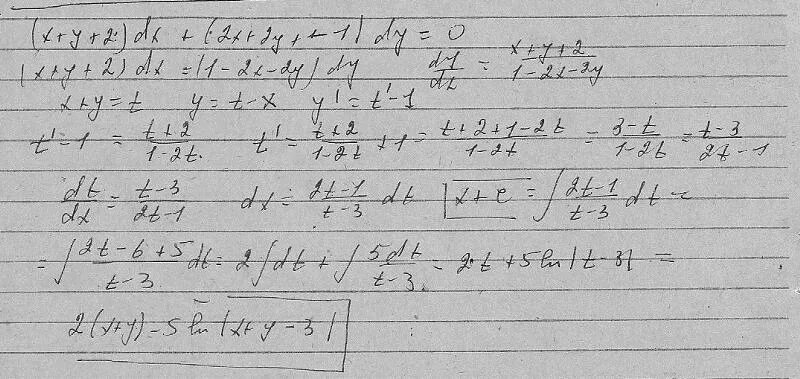 (x+y+2)dx + (2x+2y+-1) dy = 0
(x+y+2) dx = (1-2x-2y) dy dy/dx = x+y+2/1-2x-2y
x+y=t y=t-x y'=t'-1
t'-1 = t+2/1-2t. t' = t+2/1-2t +1 = t+2+1-2t/1-2t = 3-t/1-2t = t-3/2t-1
dt/dx = t-3/2t-1 dx = 2t-1/t-3 dt x+c = ∫ 2t-1/t-3 dt =
= ∫ 2t-6+5/t-3 dt = 2∫dt + ∫ 5dt/t-3. = 2t + 5ln|t-3| =
2(x+y) - 5 ln|x+y-3|